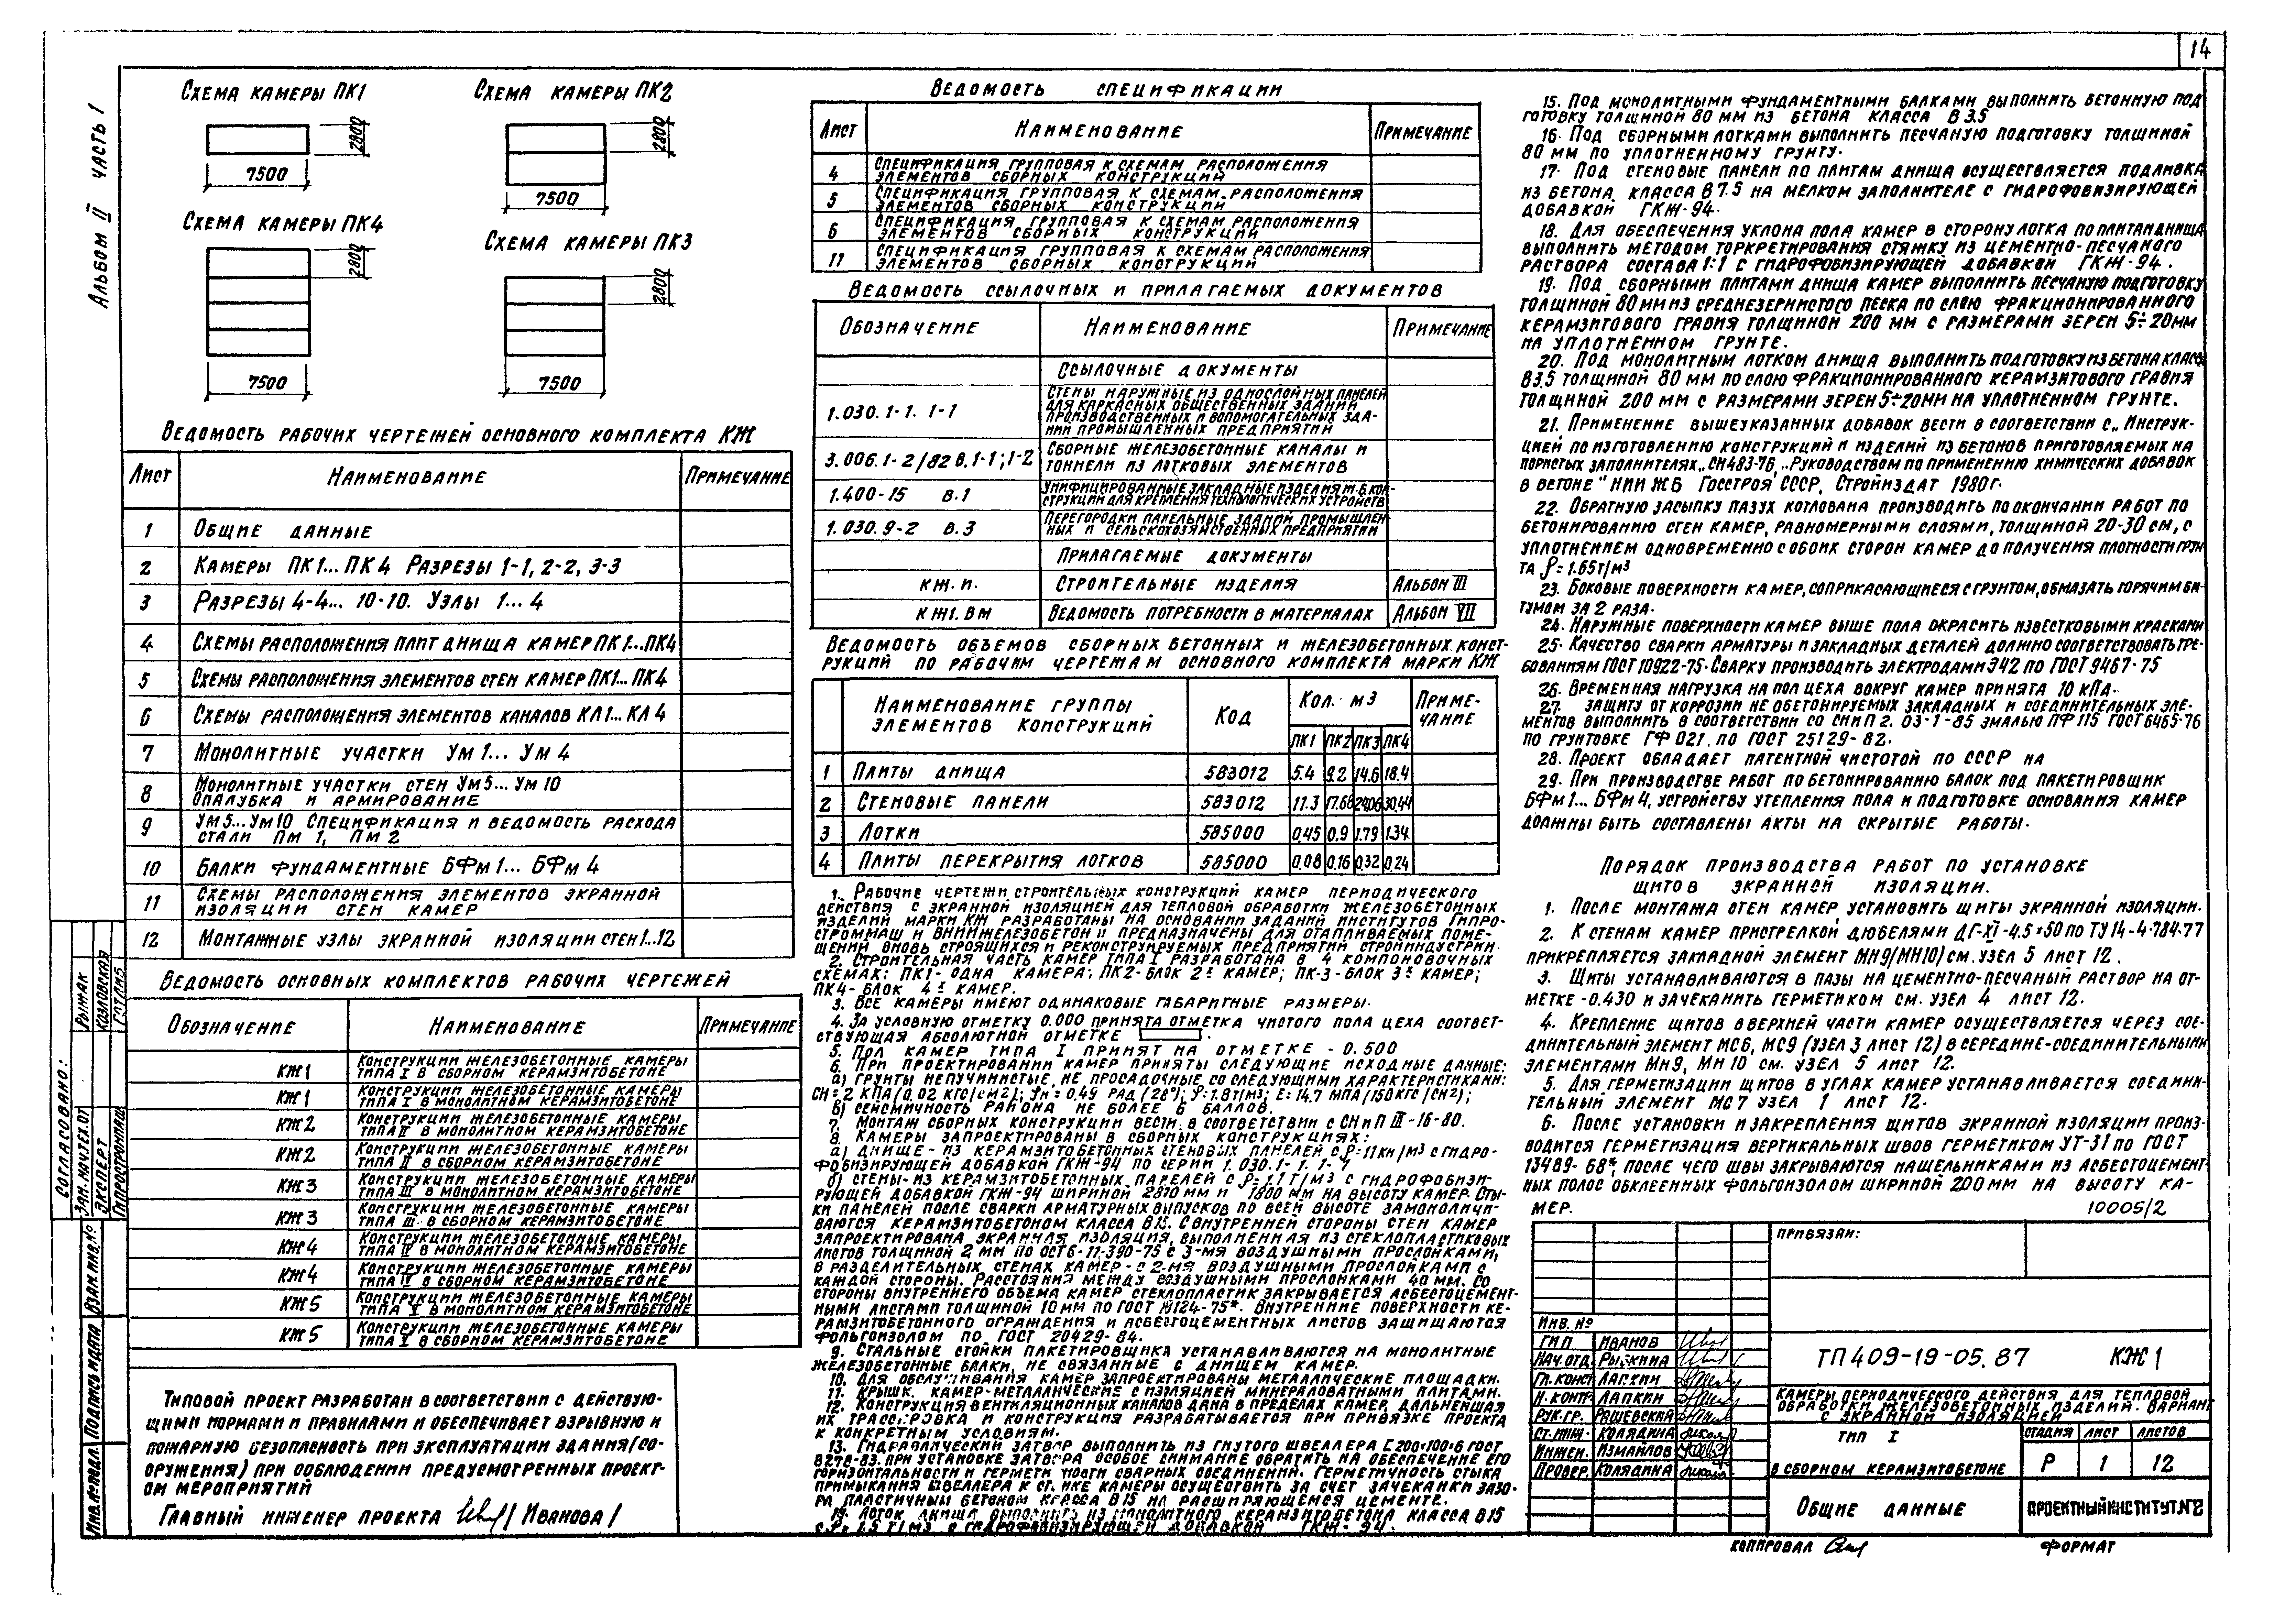 14
Альбом II часть 1
Схема камеры ПК1
2800
7500
Схема камеры ПК2
2800
7500
Схема камеры ПК4
2800
7500
Схема камеры ПК3
2800
7500
Ведомость рабочих чертежей основного комплекта КЖ
Лист Наименование Примечание
1 Общие данные
2 Камеры ПК1... ПК4 Разрезы 1-1, 2-2, 3-3
3 Разрезы 4-4... 10-10. Узлы 1... 4
4 Схемы расположения плит днища камер ПК1...ПК4
5 Схемы расположения элементов стен камер ПК1... ПК4
6 Схемы расположения элементов каналов КЛ1... КЛ4
7 Монолитные участки Ум1... Ум4
8 Монолитные участки стен Ум5... Ум10
Опалубка и армирование
9 Ум5...Ум10 Спецификация и ведомость расхода
стали Пм 1, Пм 2
10 Балки фундаментные БФм1... БФм4
11 Схемы расположения элементов экранной
изоляции стен камер
12 Монтажные узлы экранной изоляции стен 1...12
Ведомость основных комплектов рабочих чертежей
Обозначение Наименование Примечание
КЖ1 Конструкции железобетонные камеры
типа I в сборном керамзитобетоне
КЖ1 Конструкции железобетонные камеры
типа I в монолитном керамзитобетоне
КЖ2 Конструкции железобетонные камеры
типа II в монолитном керамзитобетоне
КЖ2 Конструкции железобетонные камеры
типа II в сборном керамзитобетоне
КЖ3 Конструкции железобетонные камеры
типа III в монолитном керамзитобетоне
КЖ3 Конструкции железобетонные камеры
типа III в сборном керамзитобетоне
КЖ4 Конструкции железобетонные камеры
типа IV в монолитном керамзитобетоне
КЖ4 Конструкции железобетонные камеры
типа IV в сборном керамзитобетоне
КЖ5 Конструкции железобетонные камеры
типа V в монолитном керамзитобетоне
КЖ5 Конструкции железобетонные камеры
типа V в сборном керамзитобетоне
Типовой проект разработан в соответствии с действую-
щими нормами и правилами и обеспечивает взрывную и
пожарную безопасность при эксплуатации здания (со-
оружения) при соблюдении предусмотренных проект-
ом мероприятий
Главный инженер проекта /Иванова/
Согласовано:
Зам.нач.ех.от Рыжак
Эксперт Козловская
Гипростроммаш Готлиб
Взам.инв.№
Подпись и дата
Инв.№ подл.
Ведомость спецификации
Лист Наименование Примечание
4 Спецификация групповая к схемам расположения
элементов сборных конструкций
5 Спецификация групповая к схемам расположения
элементов сборных конструкции
6 Спецификация групповая к схемам расположения
элементов сборных конструкций
11 Спецификация групповая к схемам расположения
элементов сборных конструкций
Ведомость ссылочных и прилагаемых документов
Обозначение Наименование Примечание
Ссылочные документы
1.030.1-1. 1-1 Стены наружные из однослойных панелей
для каркасных общественных зданий
производственных и вспомогательных зда-
ний промышленных предприятий
3.006.1-2/82 в.1-1; 1-2 Сборные железобетонные каналы и
тоннели из лотковых элементов
1.400-15 в.1 Унифицированные закладные изделия ж.б.кон-
струкций для крепления технологических устройств
1.030.9-2 в.3 Перегородки панельные зданий промышлен-
ных и сельскохозяйственных предприятий
Прилагаемые документы
КЖ.И. Строительные изделия Альбом III
КЖ1.ВМ Ведомость потребности в материалах Альбом VII
Ведомость объемов сборных бетонных и железобетонных конст-
рукций по рабочим чертежам основного комплекта марки КЖ
Наименование группы элементов конструкций Код Кол. м3 Приме-чание
ПК1 ПК2 ПК3 ПК4
1 Плиты днища 583012 5.4 9.2 14.6 18.4
2 Стеновые панели 583012 11.3 17.68 24.06 30.44
3 Лотки 585000 0.45 0.9 1.79 1.34
4 Плиты перекрытия лотков 585000 0.08 0.16 0.32 0.24
1. Рабочие чертежи строительных конструкций камер периодического
действия с экранной изоляцией для тепловой обработки железобетонных
изделий марки КЖ разработаны на основании заданий институтов Гипро-
строммаш и ВНИИжелезобетон и предназначены для отапливаемых поме-
щений вновь строящихся и реконструируемых предприятий стройиндустрии.
2. Строительная часть камер типа I разработана в 4 компоновочных
схемах: ПК1- одна камера; ПК2-блок 2х камер; ПК-3-блок 3х камер;
ПК4- блок 4х камер.
3. Все камеры имеют одинаковые габаритные размеры.
4. За условную отметку 0.000 принята отметка чистого пола цеха соответ-
ствующая абсолютной отметке .
5. Пол камер типа I принят на отметке - 0.500
6. При проектировании камер приняты следующие исходные данные:
а) грунты непучинистые, не просадочные со следующими характеристиками:
Сн=2 кПа (0.02 кгс/см2); φн=0.49 рад (28°); ρ=1.8т/м3; E=14.7 МПа (150кгс/см2);
б) сейсмичность района не более 6 баллов.
7. Монтаж сборных конструкции вести в соответствии с СНиП III-16-80.
8. Камеры запроектированы в сборных конструкциях:
а) днище- из керамзитобетонных стеновых панелей с ρ=11кн/м3 с гидро-
фобизирующей добавкой ГКЖ-94 по серии 1.030.1-1. 1-1
б) стены-из керамзитобетонных панелей с ρ=1.1т/м3 с гидрофобизи-
рующей добавкой ГКЖ-94 шириной 2800 мм и 1800 мм на высоту камер. Сты-
ки панелей после сварки арматурных выпусков по всей высоте замоноличи-
ваются керамзитобетоном класса В15. С внутренней стороны стен камер
запроектирована экранная изоляция, выполненная из стеклопластиковых
листов толщиной 2 мм по ОСТ6-11-390-75 с 3-мя воздушными прослойками,
в разделительных стенах камер - с 2-мя воздушными прослойками с
каждой стороны. Расстояния между воздушными прослойками 40 мм. Со
стороны внутреннего объема камер стеклопластик закрывается асбестоцемент-
ными листами толщиной 10мм по ГОСТ 18124-75*. Внутренние поверхности ке-
рамзитобетонного ограждения и асбестоцементных листов защищаются
фольгоизолом по ГОСТ 20429-84.
9. Стальные стойки пакетировщика устанавливаются на монолитные
железобетонные балки, не связанные с днищем камер.
10. Для обслуживания камер запроектированы металлические площадки.
11. Крышк. камер-металлические с изоляцией минераловатными плитами.
12. Конструкция вентиляционных каналов дана в пределах камер, дальнейшая
их трассировка и конструкция разрабатывается при привязке проекта
к конкретным условиям.
13. Гидравлический затвор выполнить из гнутого швеллера [200×100×6 ГОСТ
8278-83. При установке затвора особое внимание обратить на обеспечение его
горизонтальности и герметичности сварных соединений. Герметичность стыка
примыкания швеллера к стенке камеры осуществить за счет зачеканки зазо-
ра пластичным бетоном класса В15 на расширяющемся цементе.
14. Лоток днища выполнить из монолитного керамзитобетона класса В15
с ρ= 1.5 т/м3 с гидрофобизирующей добавкой ГКЖ-94.
15. Под монолитными фундаментными балками выполнить бетонную под
готовку толщиной 80 мм из бетона класса В 3.5
16. Под сборными лотками выполнить песчаную подготовку толщиной
80 мм по уплотненному грунту.
17. Под стеновые панели по плитам днища осуществляется подливка
из бетона класса В 7.5 на мелком заполнителе с гидрофобизирующей
добавкой ГКЖ-94.
18. Для обеспечения уклона пола камер в сторону лотка по плитам днища
выполнить методом торкретирования стяжку из цементно-песчаного
раствора состава 1:1 с гидрофобизирующей добавкой ГКЖ-94.
19. Под сборными плитами днища камер выполнить песчаную подготовку
толщиной 80 мм из среднезернистого песка по слою фракционированного
керамзитового гравия толщиной 200 мм с размерами зерен 5÷20мм
на уплотненном грунте.
20. Под монолитным лотком днища выполнить подготовку из бетона класса
В3.5 толщиной 80 мм по слою фракционированного керамзитового гравия
толщиной 200 мм с размерами зерен 5÷20мм на уплотненном грунте.
21. Применение вышеуказанных добавок вести в соответствии с „Инструк-
цией по изготовлению конструкций и изделий из бетонов приготовляемых на
пористых заполнителях„ СН483-76, „Руководством по применению химических добавок
в бетоне" НИИЖБ Госстроя СССР, Стройиздат 1980г.
22. Обратную засыпку пазух котлована производить по окончании работ по
бетонированию стен камер, равномерными слоями, толщиной 20-30 см, с
уплотнением одновременно с обоих сторон камер до получения плотности грун
та ρ=1.65т/м3
23. Боковые поверхности камер, соприкасающиеся с грунтом, обмазать горячим би-
тумом за 2 раза.
24. Наружные поверхности камер выше пола окрасить известковыми красками
25. Качество сварки арматуры и закладных деталей должно соответствовать тре-
бованиям ГОСТ 10922-75. Сварку производить электродами Э42 по ГОСТ 9467-75
26. Временная нагрузка на пол цеха вокруг камер принята 10 кПа.
27. Защиту от коррозии не обетонируемых закладных и соединительных эле-
ментов выполнить в соответствии со СНиП 2.03-1-85 эмалью ПФ115 ГОСТ 6465-76
по грунтовке ГФ 021 по ГОСТ 25129-82.
28. Проект обладает патентной чистотой по СССР на
29. При производстве работ по бетонированию балок под пакетировщик
БФм1... БФм4, устройству утепления пола и подготовке основания камер
должны быть составлены акты на скрытые работы.
Порядок производства работ по установке
щитов экранной изоляции.
1. После монтажа стен камер установить щиты экранной изоляции.
2. К стенам камер пристрелкой дюбелями ДГ-XI-4.5×50 по ТУ14-4-784-77
прикрепляется закладной элемент МН9(МН10) см. узел 5 лист 12.
3. Щиты устанавливаются в пазы на цементно-песчаный раствор на от-
метке -0.430 и зачеканить герметиком см. узел 4 лист 12.
4. Крепление щитов в верхней части камер осуществляется через сое-
динительный элемент МС6, МС9 (узел 3 лист 12) в середине-соединительными
элементами Мн9, Мн10 см. узел 5 лист 12.
5. Для герметизации щитов в углах камер устанавливается соедини-
тельный элемент МС7 узел 1 лист 12.
6. После установки и закрепления щитов экранной изоляции произ-
водится герметизация вертикальных швов герметиком УТ-31 по ГОСТ
13489-68* после чего швы закрываются нащельниками из асбестоцемент-
ных полос обклеенных фольгоизолом шириной 200 мм на высоту ка-
мер.
10005/2
Привязан:
Инв. №
ГИП Иванов
Нач.отд. Рыскина
Гл.конст Лапкин
Н.контр Лапкин
Рук.гр. Рашевский
Ст.инж. Колядина
Инжен. Измайлов
Провер. Колядина
ТП 409-19-05.87 КЖ1
Камеры периодического действия для тепловой
обработки железобетонных изделий. Вариант
с экранной изоляцией
Тип I
в сборном керамзитобетоне
Стадия Лист Листов
Р 1 12
Общие данные
Проектный институт №2
Копировал
Формат